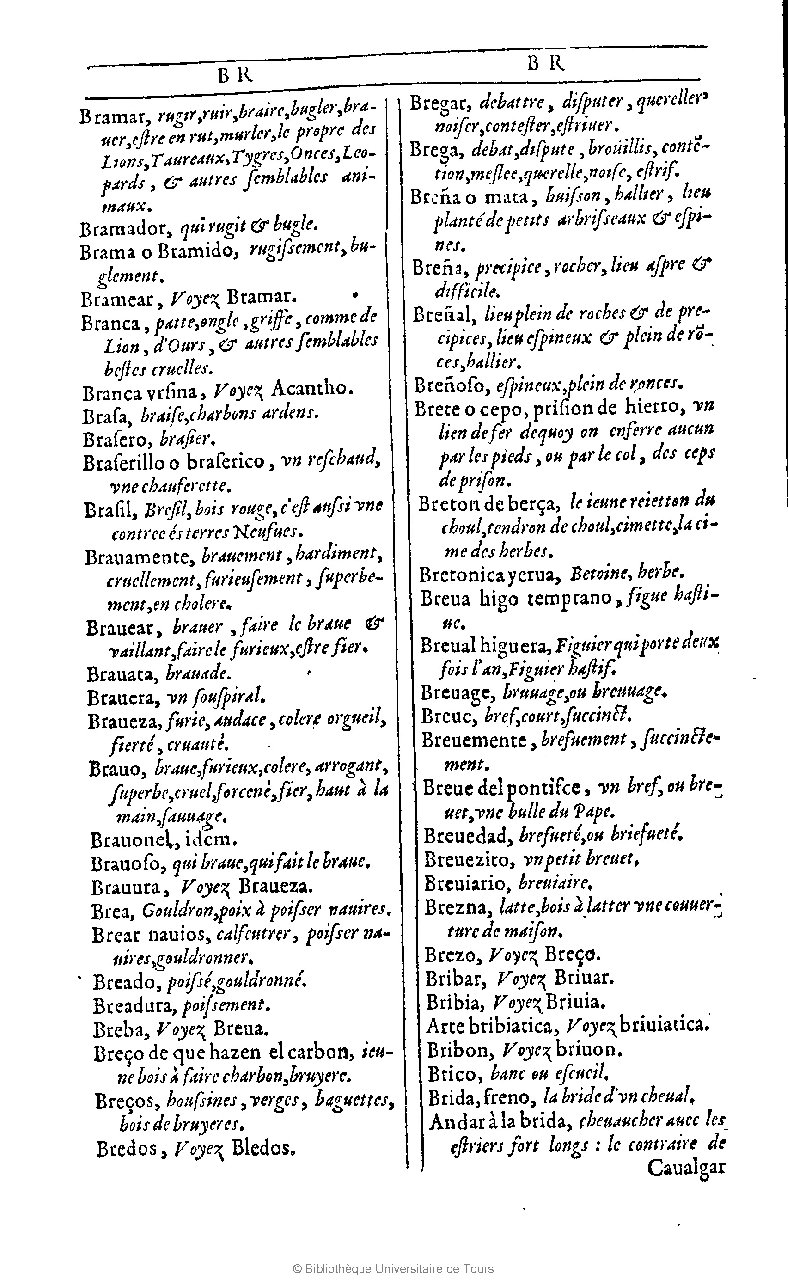 B R
Bramar, rugir,ruir,braire,bugler,bra-
uer,eſtre en rut,murler,le propre des
Lions,Taureaux,Tygres,Onces,Leo-
pards, & autres ſemblables ani-
maux.
Bramador, qui rugit & bugle.
Brama o Bramido, rugiſsement,bu-
glement.
Bramear, Voyez Bramar.
Branca, patte,ongle,griffe, comme de
Lion, d'Ours, & autres ſemblables
beſtes cruelles.
Branca vrſina, Voyez Acantho.
Braſa, braiſe,charbons ardens.
Braſero, braſier.
Braſerillo o braſerico, vn reſchaud,
vne chauferette.
Braſil, Breſil,bois rouge,c'eſt auſsi vne
contree és terres Neufues.
Brauamente, brauement,hardiment,
cruellement,furieuſement, ſuperbe-
ment,en cholere.
Brauear, brauer, faire le braue &
vaillant,faire le furieux,eſtre fier.
Brauata, brauade.
Brauera, vn ſouſpiral.
Braueza, furie,audace, colere orgueil,
fierté, cruauté.
Brauo, braue,furieux,colere,arrogant,
ſuperbe,cruel,forcené,fier,haut à la
main,ſauuage.
Brauonel, idem.
Brauoſo, qui braue,qui fait le braue.
Brauura, Voyez Braueza.
Brea, Gouldron,poix à poiſser nauires.
Brear nauios, calfeutrer, poiſser na-
uires,gouldronner.
Breado, poiſsé,gouldronné.
Breadura, poiſsement.
Breba, Voyez Breua.
Breço de que hazen el carbon, ieu-
ne bois à faire charbon,bruyere.
Breços, houſsines,verges, baguettes,
bois de bruyeres.
Bredos, Voyez Bledos.
B R
Bregar, debattre, diſputer, quereller,
noiſer,conteſter,eſtriuer.
Brega, debat,diſpute, broüillis, contē-
tion,meſlee,querelle,noiſe, eſtrif.
Breña o mata, buiſson,hallier, lieu
planté de petits arbriſseaux & eſpi-
nes.
Breña, precipice, rocher, lieu aſpre &
difficile.
Breñal, lieu plein de roches & de pre-
cipices, lieu eſpineux & plein de rō-
ces,hallier.
Breñoſo, eſpineux,plein de ronces.
Brete o cepo, priſion de hierro, vn
lien de fer dequoy on enferre aucun
par les pieds, ou par le col, des ceps
de priſon.
Breton de berça, le ieune reietton du
choul,tendron de choul,cimette,la ci-
me des herbes.
Bretonica yerua, Betoine, herbe.
Breua higo temprano, figue haſti-
ue.
Breual higuera, Figuier qui porte deux
fois l'an,Figuier haſtif.
Breuage, bruuage,ou breuuage.
Breue, bref,court,ſuccinct.
Breuemente, brefuement, ſuccincte-
ment.
Breue del pontifce, vn bref, ou bre-
uet,vne bulle du Pape.
Breuedad, brefueté,ou briefueté.
Breuezito, vn petit breuet.
Breuiario, breuiaire.
Brezna, latte,bois à latter vne couuer-
ture de maiſon.
Brezo, Voyez Breço.
Bribar, Voyez Briuar.
Bribia, Voyez Briuia.
Arte bribiatica, Voyez briuiatica.
Bribon, Voyez briuon.
Brico, banc ou eſcueil.
Brida,freno, la bride d'vn cheual.
Andar à la brida, cheuaucher auec les
eſtriers fort longs : le contraire de
Caualgar
© Bibliothèque Universitaire de Tours